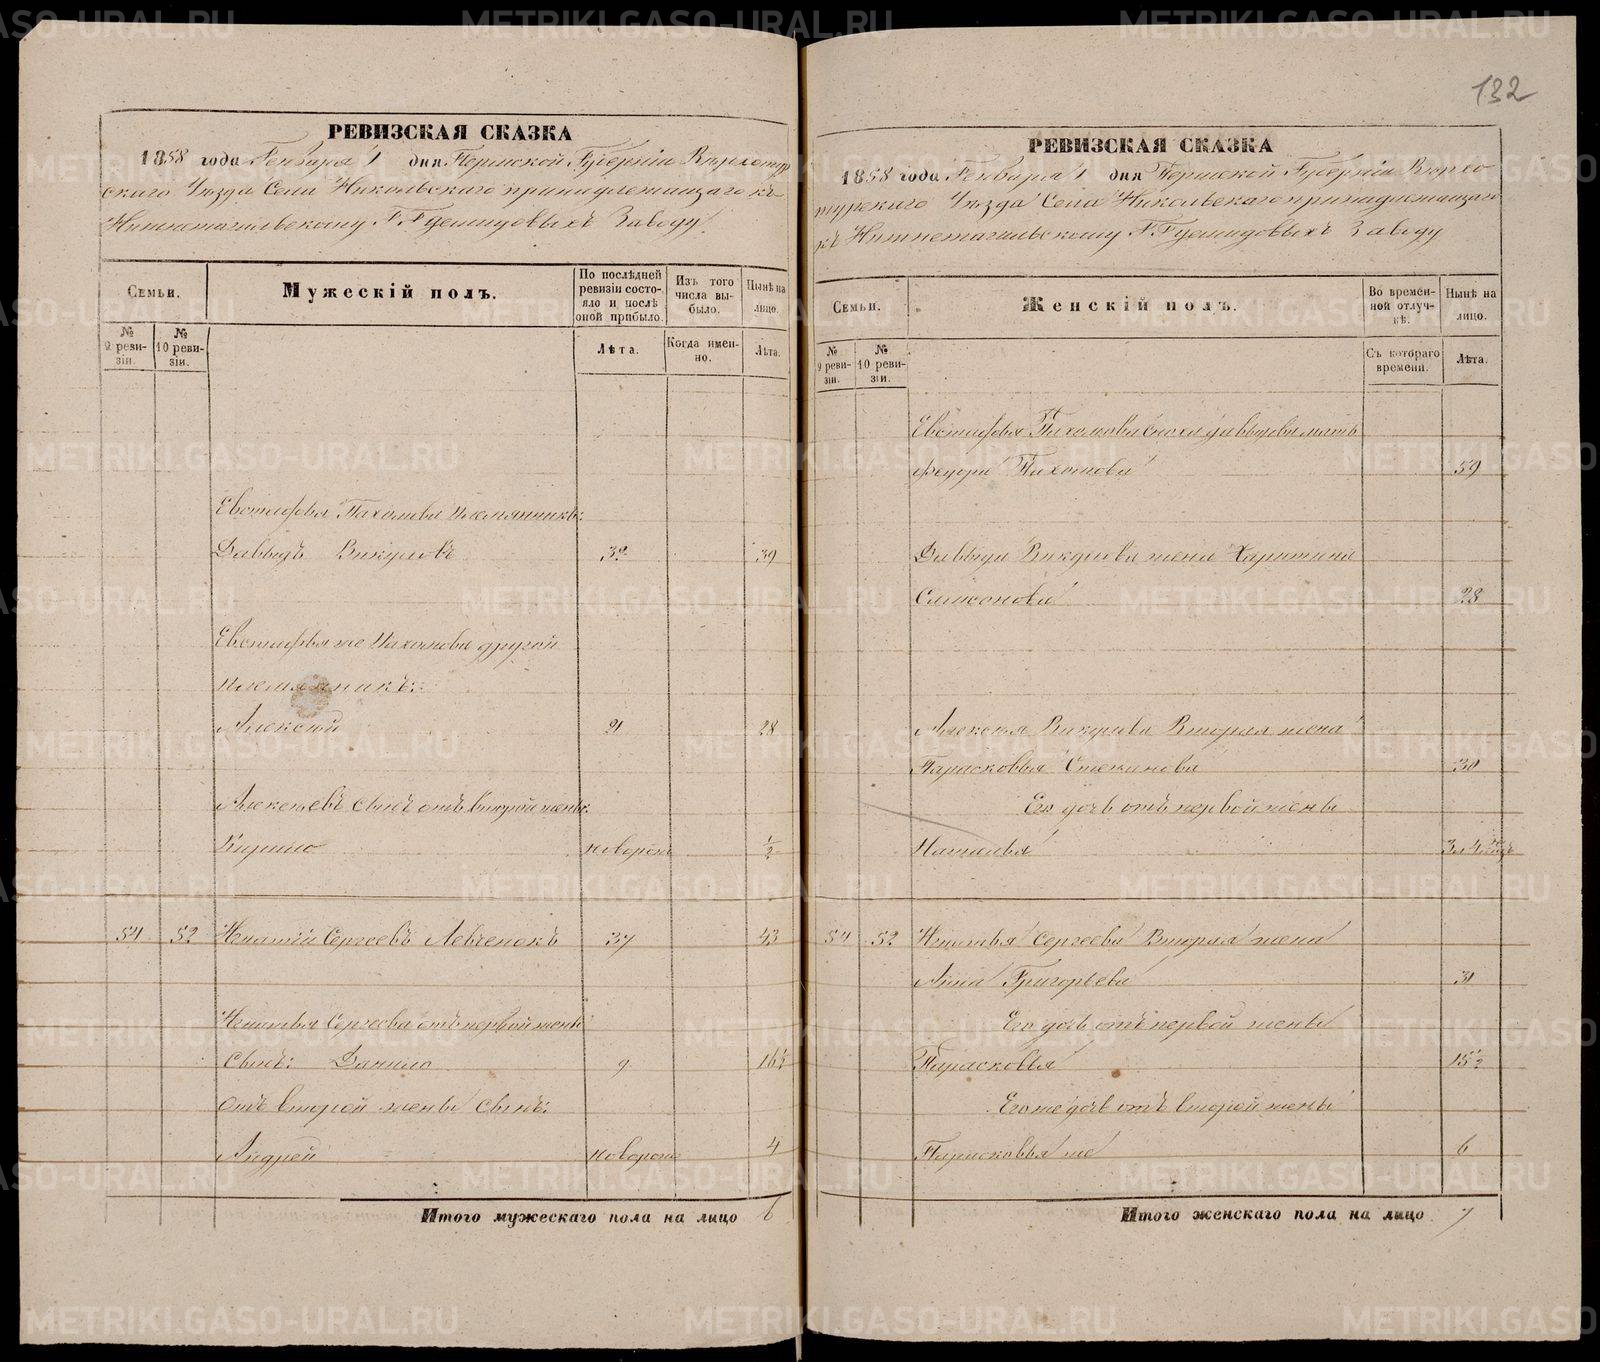 132
РЕВИЗСКАЯ СКАЗКА
1858 года Генваря 1 дня Пермской Губерніи Верхотур
скаго Уѣзда Села Никольскаго принадлежащаго къ
Нижнетагильскому Г.Г. Демидовыхъ Заводу.
Семьи.
Мужескій полъ.
По послѣдней ревизіи состояло и послѣ оной прибыло.
Изъ того числа выбыло.
Нынѣ на лицо.
№ 9 ревизіи.
№ 10 ревизіи.
Лѣта.
Когда именно.
Лѣта.
Евстафья Пахомова племянникъ:
Давыдъ Викуловъ 32 39
Евстафья же Пахомова другой
племянникъ:
Алексѣй 21 28
Алексѣевъ сынъ отъ второй жены:
новорож ½
54 52 Игнатій Сергеевъ Левченокъ 37 43
Игнатья Сергеева отъ первой жены
сынъ: Данило 9 16½
Отъ второй жены сынъ:
Андрей новорож 4
Итого мужескаго пола на лицо 6
РЕВИЗСКАЯ СКАЗКА
1858 года Генваря 1 дня Пермской Губерніи Верхо
турскаго Уѣзда Села Никольскаго принадлежащаго
къ Нижнетагильскому Г.Г. Демидовыхъ Заводу
Семьи.
Женскій полъ.
Во временной отлучкѣ.
Нынѣ на лицо.
№ 9 ревизіи.
№ 10 ревизіи.
Съ котораго времени.
Лѣта.
Евстафья Пахомова сноха Давыдова мать
Пахомова 59
Давыда Викулова жена Харитина
Симонова 28
Алексѣя Викулова Вторая жена
Парасковья Степанова 30
Его дочь отъ первой жены
Наталья
54 52 Игнатья Сергеева Вторая жена
Анна Григорьева 31
Его дочь отъ первой жены
Парасковья 15½
Его же дочь отъ второй жены
Парасковья же 6
Итого женскаго пола на лицо 7
METRIKI.GASO-URAL.RU